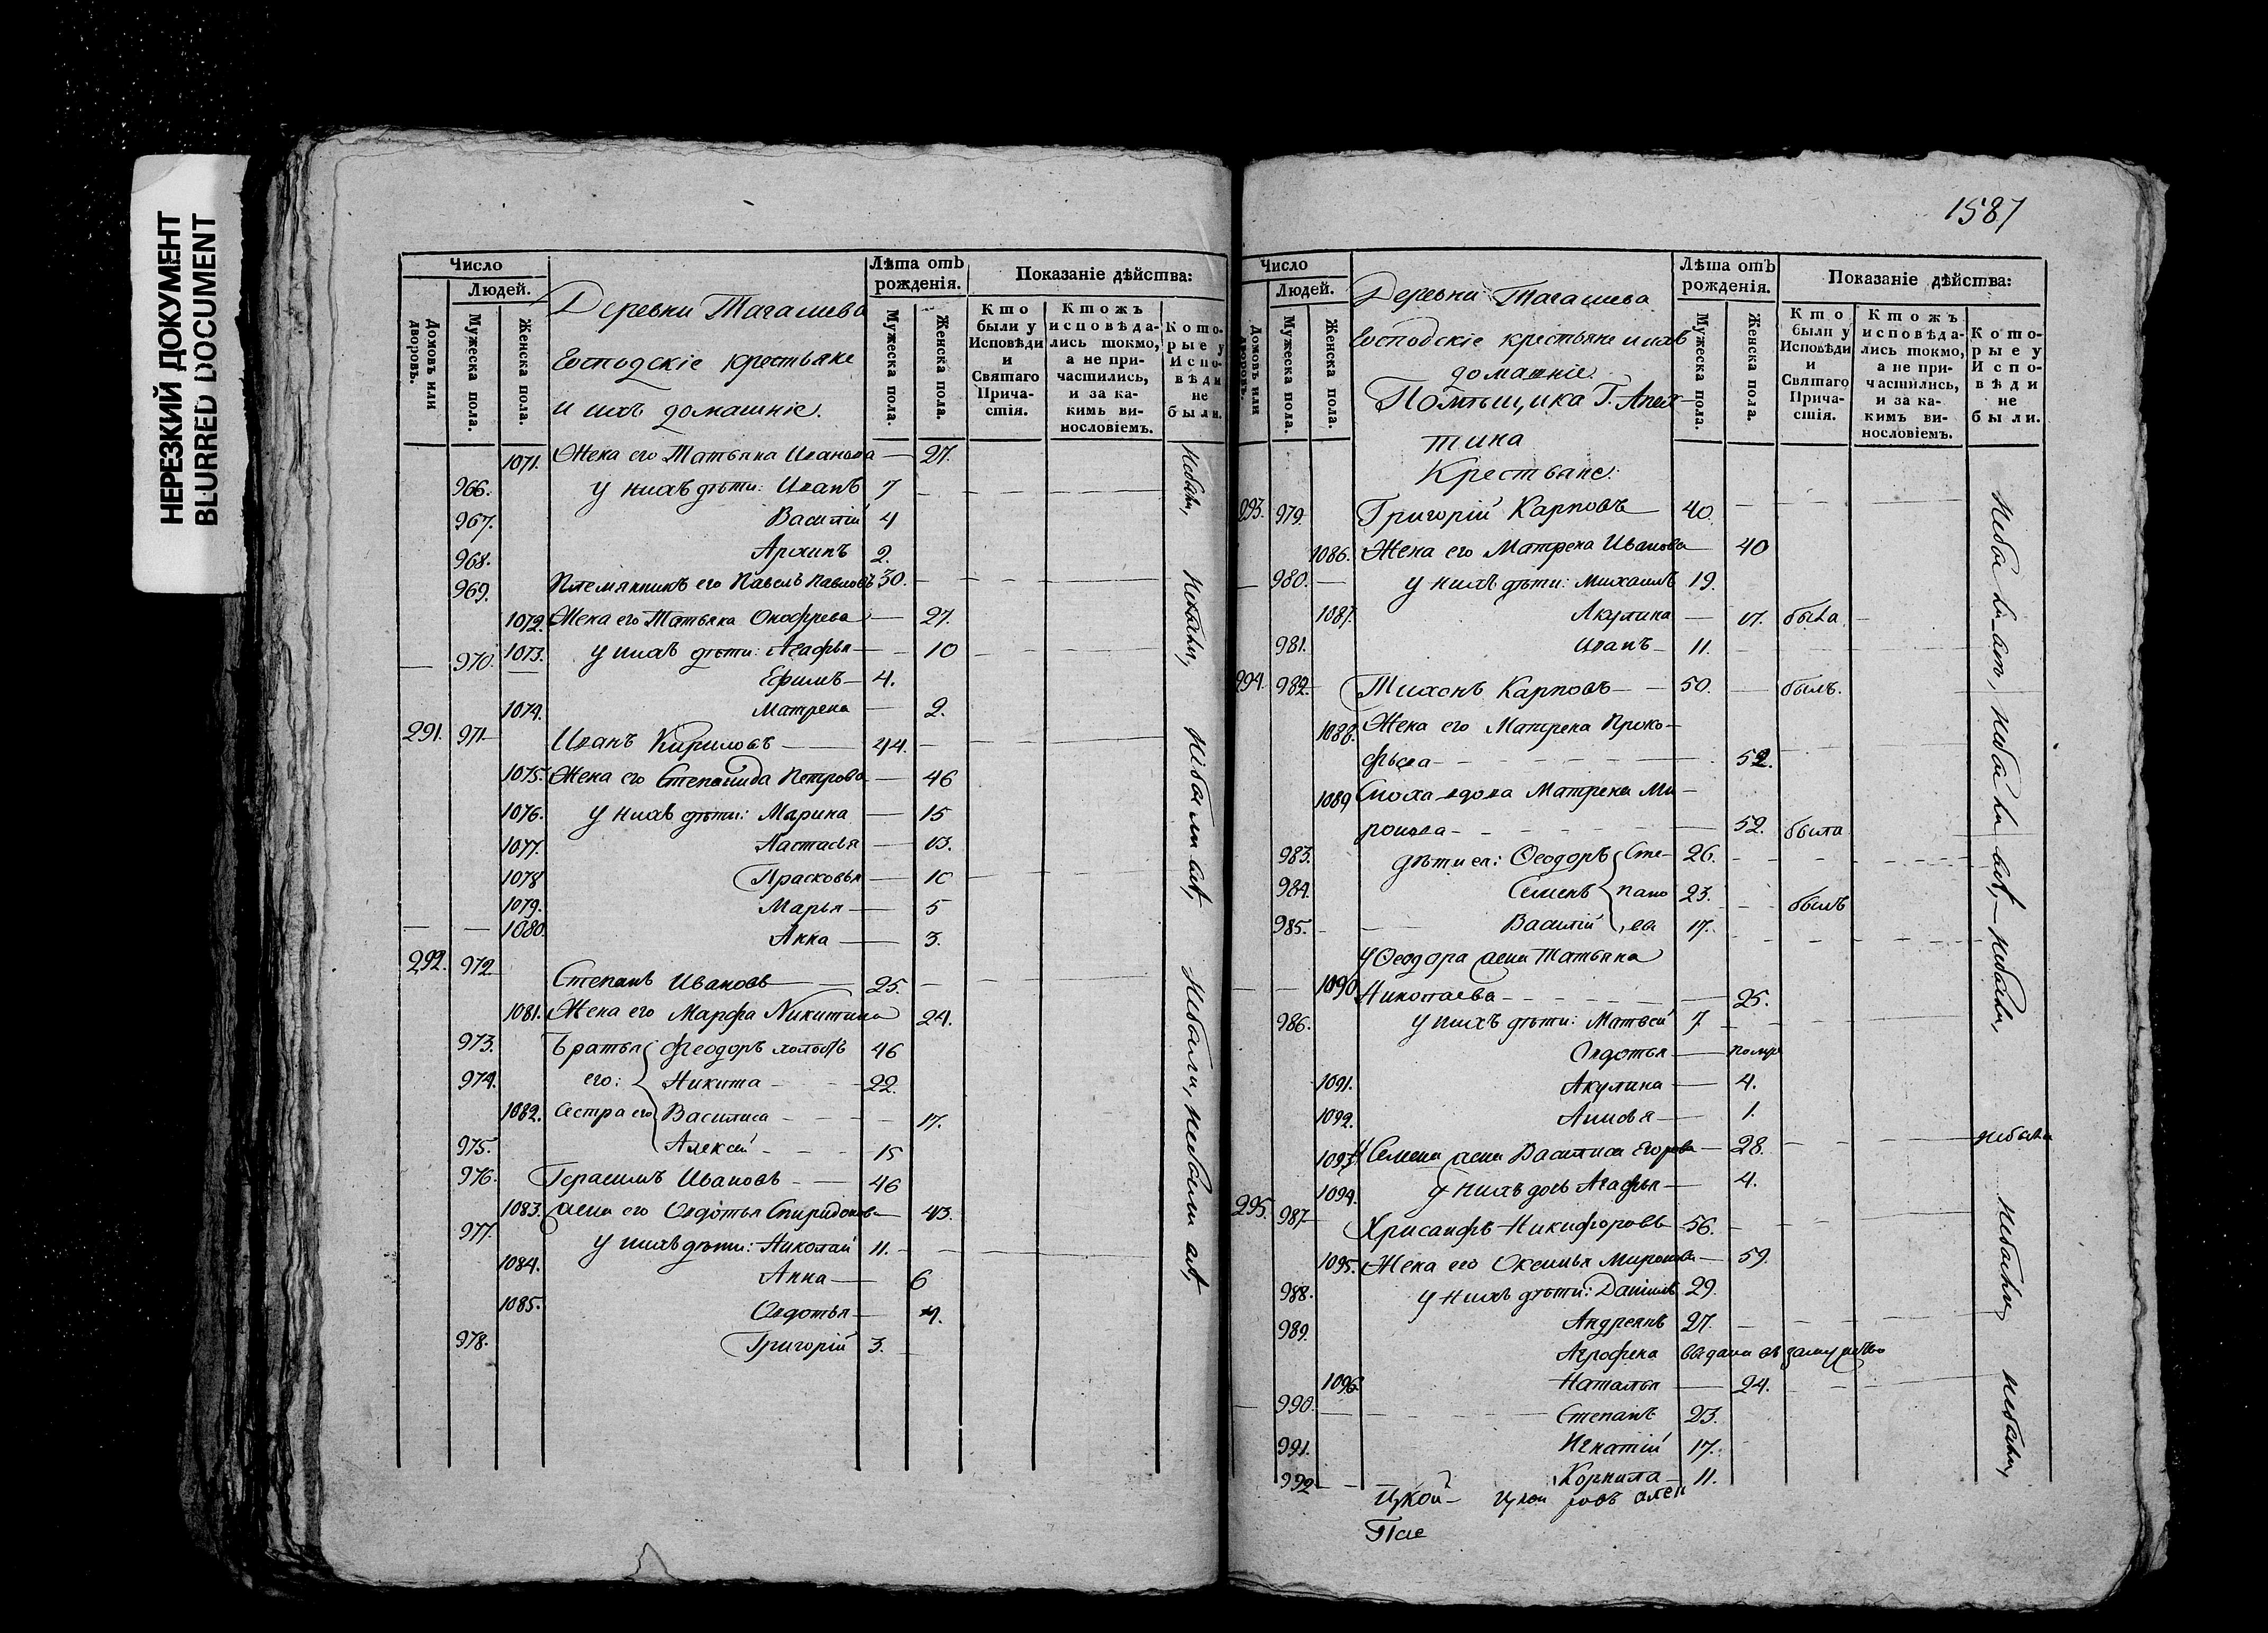 НЕРЕЗКИЙ ДОКУМЕНТ
BLURRED DOCUMENT
Число
Людей.
Домовъ или дворовъ.
Мужеска пола.
Женска пола.
Деревни Тагашева
Господскіе крестьяне
и ихъ домашніе.
Лѣта отъ рожденія.
Мужеска пола.
Женска пола.
Показаніе дѣйства:
Кто были у Исповѣди и Святаго Причастія.
Ктожъ исповѣдались токмо, а не причастились, и за какимъ винословіемъ.
Которые у Исповѣди не были.
1071. Жена его Татьяна Иванова — 27.
966. у нихъ дѣти: Иванъ 7
967. Василій 4
968. Архипъ 2.
969. Племянникъ его Павелъ Павловъ 30.
1072. Жена его Татьяна Онофрева — 27.
1073. у нихъ дѣти: Агафья — 10
970. Ефимъ — 4.
1074. Матрена — 2.
291. 971. Иванъ Кириловъ — 44.
1075. Жена его Степанида Петрова — 46
1076. у нихъ дѣти: Марина — 15
1077. Настасья — 13.
1078 Прасковья — 10
1079. Марья — 5
1080. Анна — 3.
292. 972 Степанъ Ивановъ — 25.
1081. Жена его Марфа Никитина 24.
973. Братья его: Феодоръ холостъ 46
974. Никита 22.
1082. Сестра его Василиса 17.
975. Алексей 15
976. Герасимъ Ивановъ 46
1083. жена его Овдотья Спиридонова 43.
977. у нихъ дѣти: Николай 11.
1084. Анна — 6
1085. Овдотья — 4.
978. Григорій 3.
небыли,
небыли,
небыли
небыли, небыли
1587
Число
Людей.
Домовъ или дворовъ.
Мужеска пола.
Женска пола.
Деревни Тагашева
Господскіе крестьяне и ихъ
домашніе.
Помѣщика Г.
тина
Крестьяне:
Лѣта отъ рожденія.
Мужеска пола.
Женска пола.
Показаніе дѣйства:
Кто были у Исповѣди и Святаго Причастія.
Ктожъ исповѣдались токмо, а не причастились, и за какимъ винословіемъ.
Которые у Исповѣди не были.
293. 979. Григорій Карповъ — 40.
1086. Жена его Матрена Иванова — 40
980. у нихъ дѣти: Михаилъ 19.
1087. Акулина — 17. была
981. Иванъ — 11.
294. 982 Тихонъ Карповъ — 50. былъ.
1088. Жена его Матрена Проко-
фьева — 52.
1089 Сноха вдова Матрена Ми-
ронова — 52. была
983. дѣти ея: Феодоръ Сте- 26.
984. Семенъ пано 23. былъ
985. Василій ва 17.
У Феодора жена Татьяна
1090 Николаева — 25.
986. у нихъ дѣти: Матвей 7.
Овдотья — помре
1091. Акулина — 4.
1092. 1.
1093. У Семена жена Василиса Егорова — 28. небыла
1094. у нихъ дочь Агафья — 4.
295. 987 Хрисанфъ Никифоровъ 56.
1095. Жена его Оксинья Миронова — 59.
988. у нихъ дѣти: Даніилъ 29.
989. Андреянъ 27.
Агрофена выдана въ замужство
1096 Наталья — 24.
990. Степанъ 23.
991. Игнатій 17.
992 Корнила — 11.
небыли
небыли,
небыли
небыли,